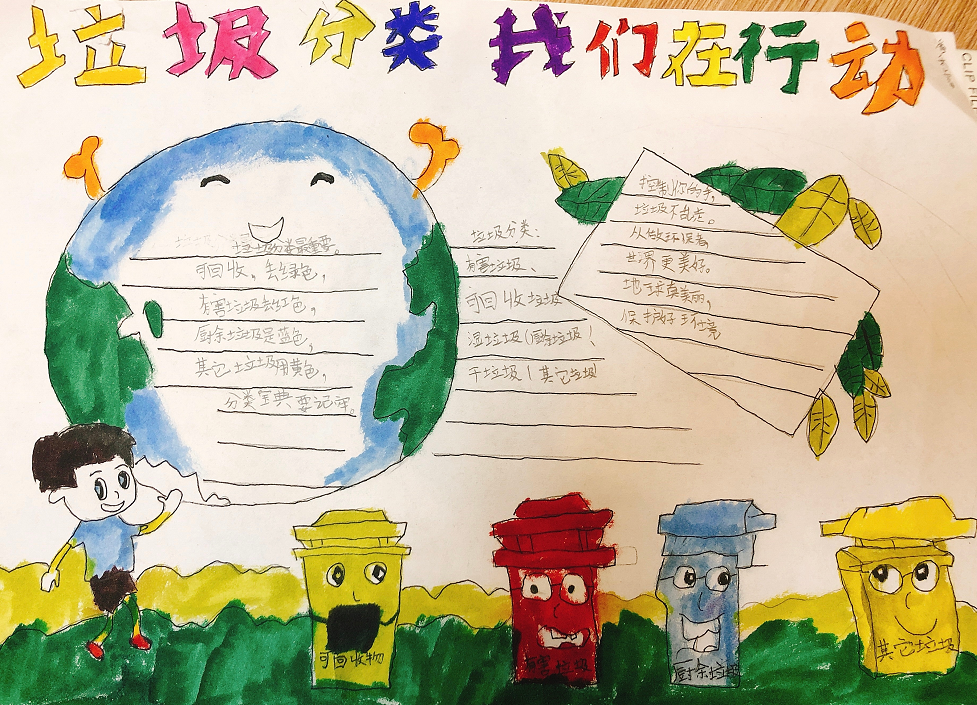 垃圾分类 我们在行动
CLIP FIL
垃圾分类最重要。
可回收,去绿色,
有害垃圾去红色,
厨余垃圾是蓝色,
其它垃圾用黄色,
分类宝典要记牢。
垃圾分类:
有害垃圾、
可回收垃圾
湿垃圾(厨余垃圾)
干垃圾(其它垃圾
控制你的手,
垃圾不乱走。
从做环保者
世界更美好。
地球真美丽,
保护好环境
可回收物
有害垃圾
厨余垃圾
其它垃圾